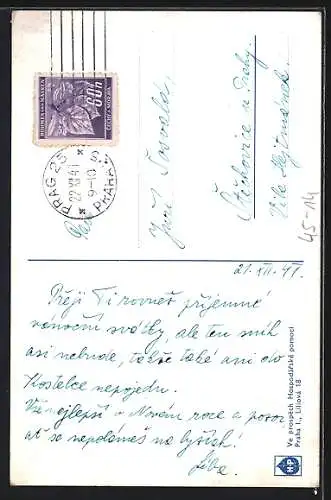 BÖHMEN u. MÄHREN
60h
ČECHY a MORAVA
PRAG 25
22.XII.41
9-10
PRAHA
Pan
Josef
Štěchovice u Prahy
Vila Hejtmánek.
45-14
21. XII. 41.
Přeji Ti rovněž příjemné
vánoční svátky, ale ten sníh
asi nebude, takže také ani do
Kostelce nepojedu.
Vše nejlepší v Novém roce a pozor
ať se nepolámeš na lyžích!
Líba.
Ve prospěch Hospodářské pomoci
Praha I., Liliová 18
HP